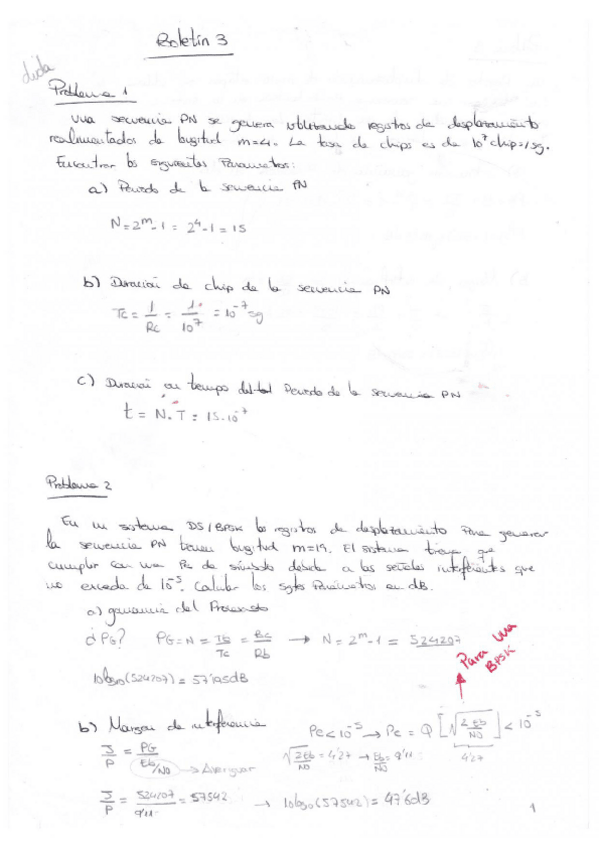 Boletín 3
duda
Problema 1
Una secuencia PN se genera utilizando registros de desplazamiento
realimentados de longitud m=4. La tasa de chips es de 10^7 chips/sg.
Encontrar los siguientes Parametros:
a) Periodo de la secuencia PN
N=2^m-1 = 2^4-1 = 15
b) Duración de chip de la secuencia PN
Tc = 1/Rc = 1/10^7 = 10^-7 sg
c) Duración en tiempo del Periodo de la secuencia PN
t = N.T = 15.10^-7
Problema 2
En un sistema DS/BPSK los registros de desplazamiento Para generar
la secuencia PN tienen longitud m=19. El sistema tiene que
cumplir con una Pe de símbolo debida a las señales interferentes que
no exceda de 10^-5. Calcular los sgtes Parámetros en dB.
a) ganancia del Procesado
¿PG? PG=N = Tb/Tc = Rc/Rb → N = 2^m-1 = 524207
Para una
BPSK
10log10(524207) = 57'195dB
b) Margen de interferencia Pe<10^-5 → Pe = Q[√(2Eb/N0)] < 10^-5
J/P = PG/(Eb/N0) → Averiguar √(2Eb/N0) = 4'27 → Eb/N0 = 9'11 4'27
J/P = 524207/9'11 = 57542 → 10log10(57542) = 47'6dB
1